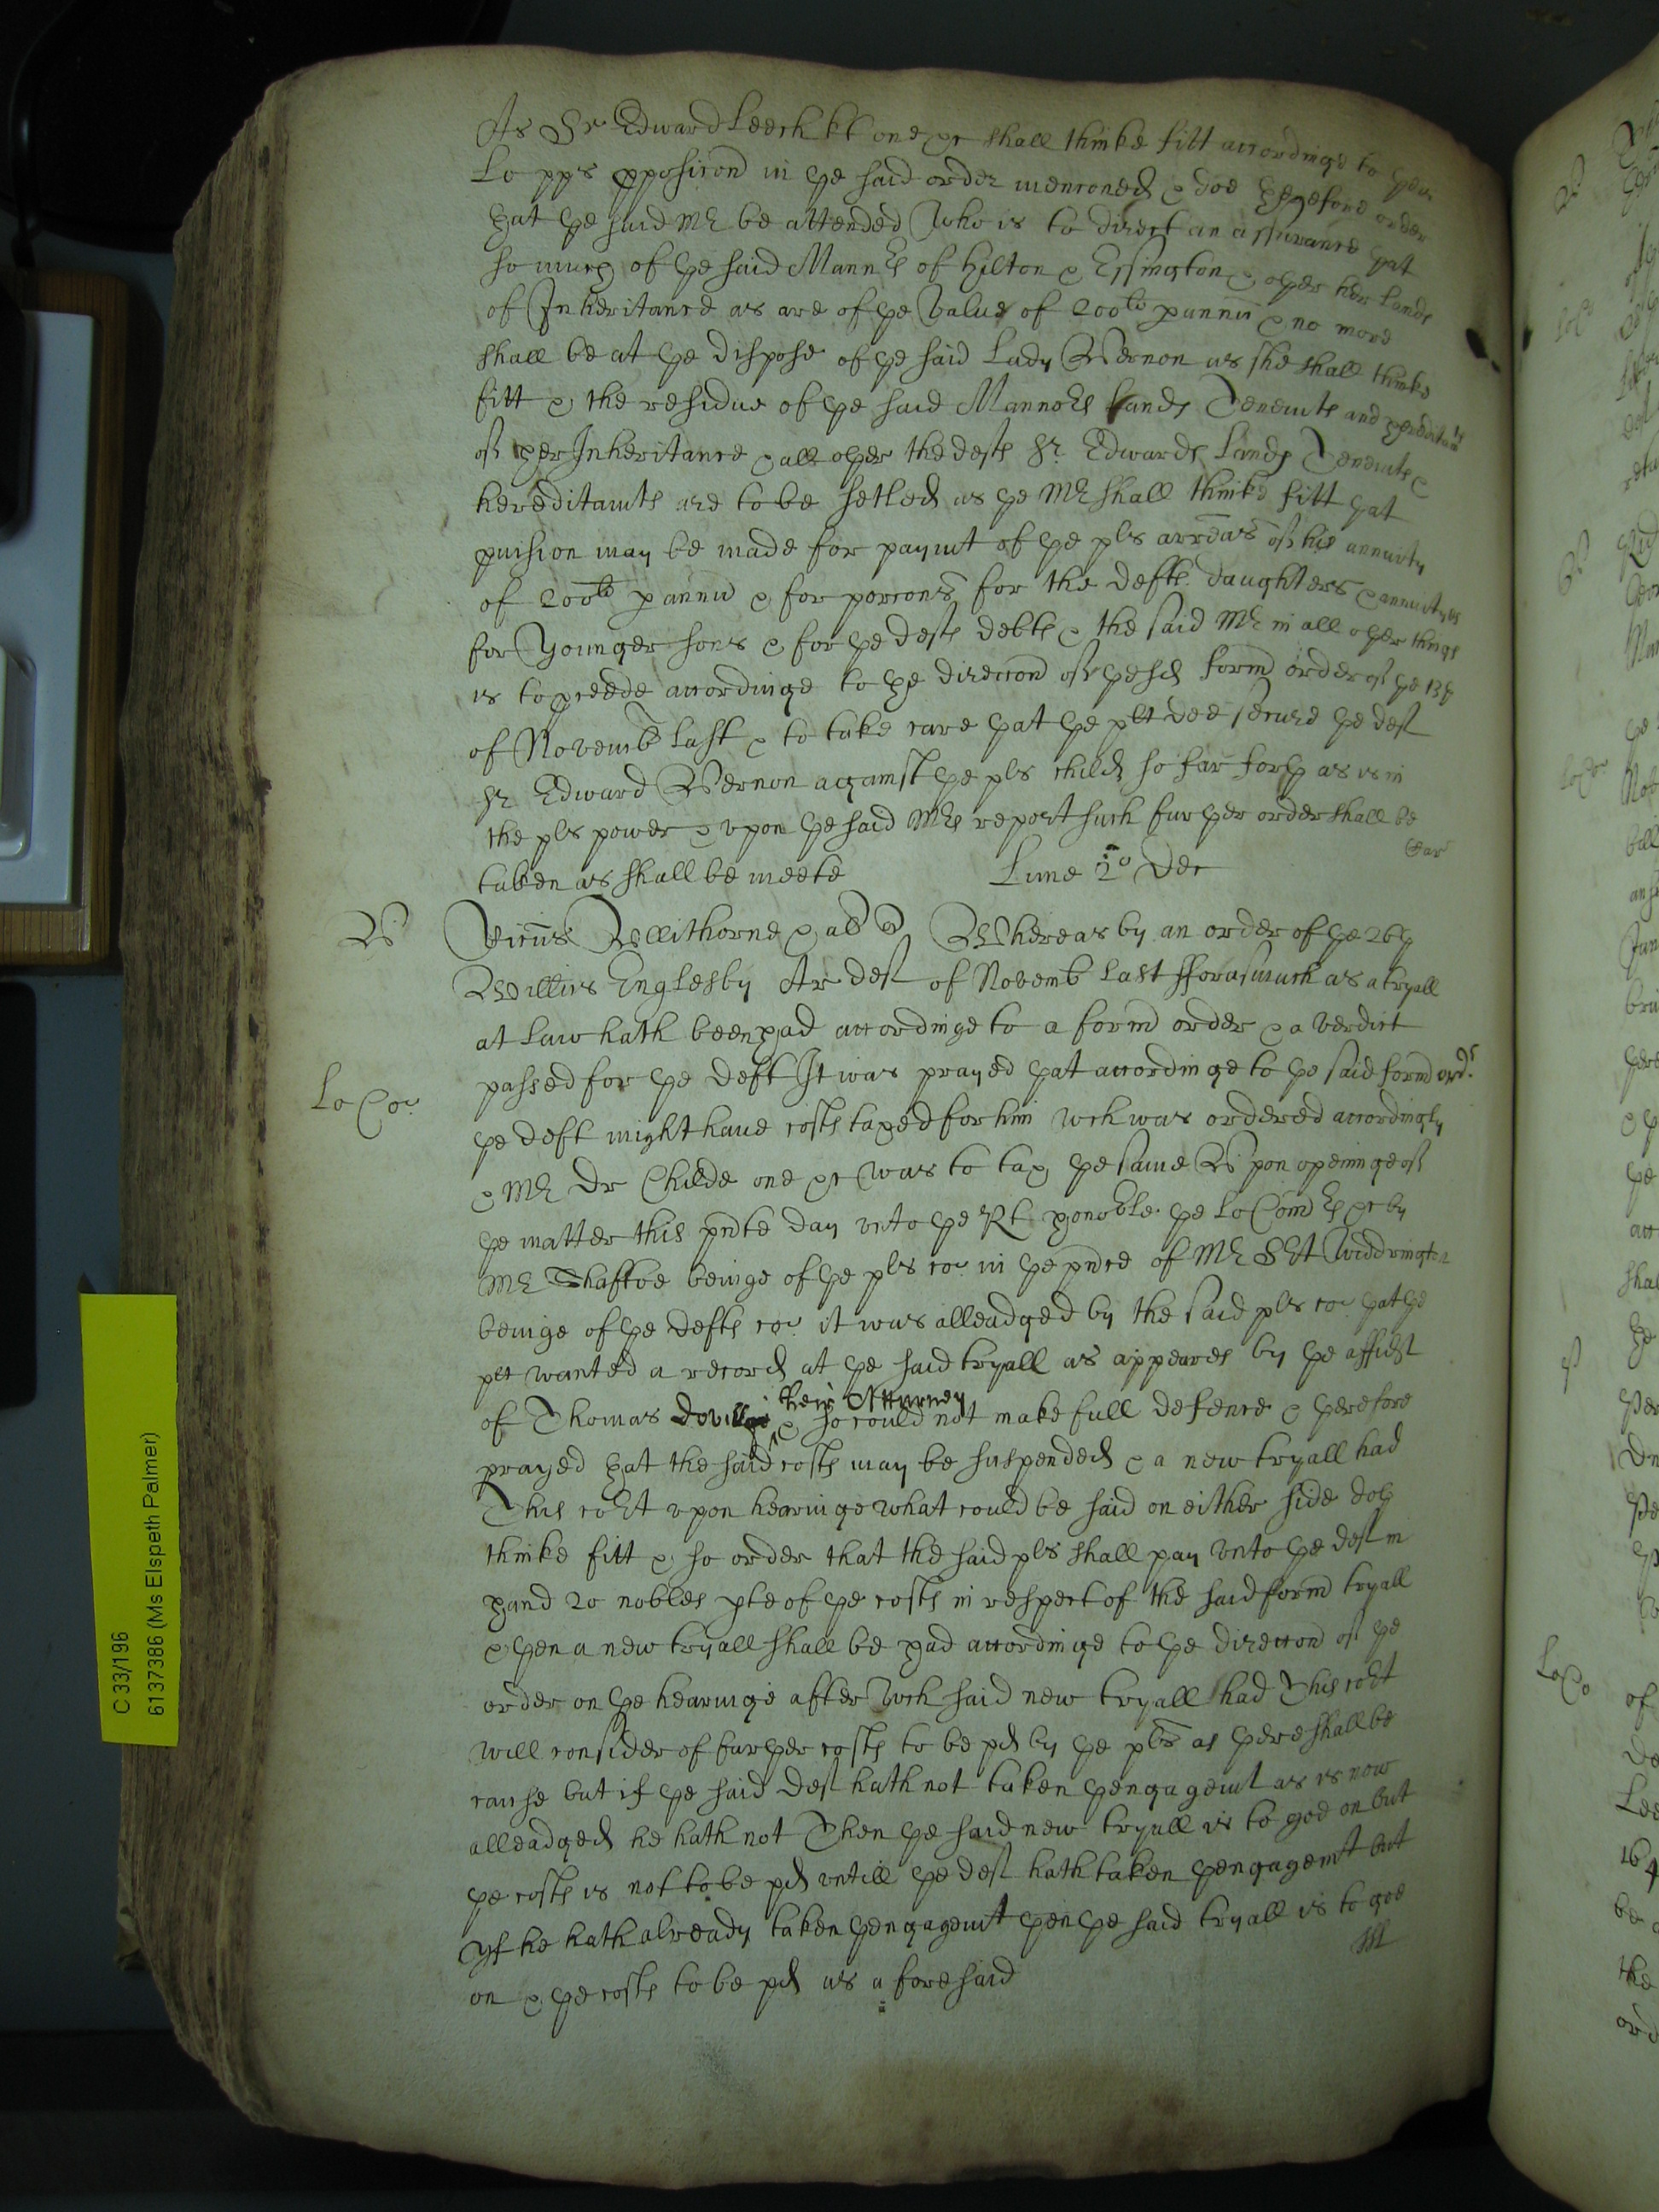 As Sr Edward Leech kt one &c shall thinke fitt accordinge to the
Lo pps pposicon in the said order menconed & doe therefore order
that the said Mr be attended Who is to direct an assurance that
so much of the said Mannrs of Hilton & Essington & other her lands
of Inheritance as are of the value of 200li p annu & no more
shall be at the dispose of the said Lady Vernon as she shall thinke
fitt & the residue of the said Mannors Lands Tenemts and hereditamts
of her Inheritance & all other the defts Sr. Edwards Lands Tenemts &
hereditamts are to be setled as the Mr shall thinke fitt that
pvision may be made for paymt of the pls arrears of his annuity
of 200li p annu & for porcons for the defts daughters & annuityes
for Younger sons & for the defts debts & the said Mr in all other things
is to pceede accordinge to the direccon of the sd form order of the 13th
of Novemb last & to take care that the plt doe secure the deft
Sr Edward Vernon against the pls child so far forth as is in
the pls power & upon the said Mrs report such further order shall be
taken as shall be meete Lune 2o Dec
V Vicius Wllithorne & al Q Whereas by an order of the 26th
Willius Englesby Ar deft of Novemb last fforasmuch as a tryall
at Law hath been had accordinge to a form order & a verdict
passed for the deft It was prayed that accordinge to the said form ordr
Lo Co:
the deft might have costs taxed for him wch was ordered accordingly
& Mr Dr Childe one &c was to tax the same Vpon openinge of
the matter this pnte day unto the Rt honoble the Lo Comrs &c by
Mr Shaftoe beinge of the pls co: in the pnce of Mr Sert Widdrington
beinge of the defts co: it was alleadged by the said pls co: that the
plt wanted a record at the said tryall as appeares by the affidt
their Atturney
of Thomas & so could not make full defence & therefore
prayed that the said costs may be suspended & a new tryall had
This cort upon hearinge what could be said on either side doth
thinke fitt & so order that the said pls shall pay unto the deft in
hand 20 nobles pte of the costs in respect of the said form tryall
& then a new tryall shall be had accordinge to the direccon of the
order on the hearinge after wch said new tryall had This cort
will consider of further costs to be pd by the pls as there shall be
cause but if the said deft hath not taken thengagemt as is now
alleadged he hath not Then the said new tryall is to goe on but
the costs is not to be pd untill the deft hath taken thengagemt but
Yf he hath already taken thengagemt then the said tryall is to goe
on & the costs to be pd as aforesaid
C 33/196
6137386 (Ms Elspeth Palmer)